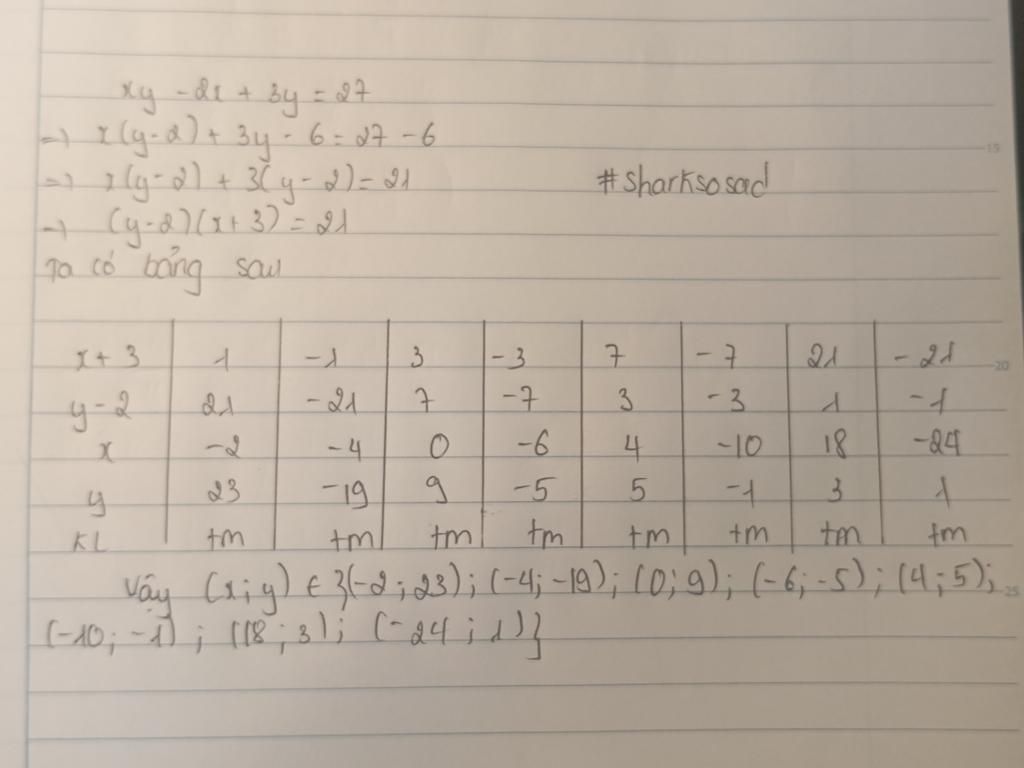 xy - 2x + 3y = 27
=> x(y-2) + 3y - 6 = 27 - 6
=> x(y-2) + 3(y-2) = 21
#sharksosad
=> (y-2)(x+3) = 21
Ta có bảng sau
x+3 1 -1 3 -3 7 -7 21 -21
y-2 21 -21 7 -7 3 -3 1 -1
x -2 -4 0 -6 4 -10 18 -24
y 23 -19 9 -5 5 -1 3 1
KL tm tm tm tm tm tm tm tm
Vậy (x;y) ∈ {(-2;23); (-4;-19); (0;9); (-6;-5); (4;5);
(-10;-1); (18;3); (-24;1)}
15
20
25